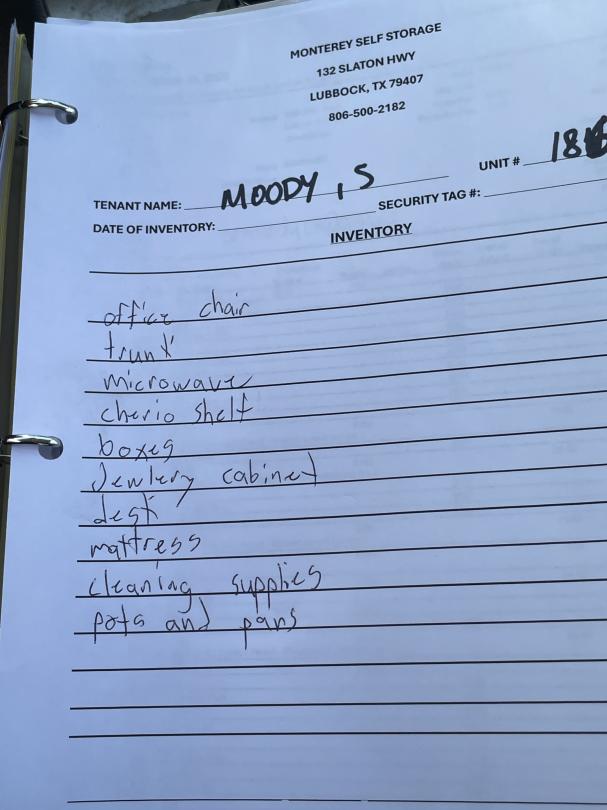 MONTEREY SELF STORAGE
132 SLATON HWY
LUBBOCK, TX 79407
806-500-2182
UNIT #
TENANT NAME: MOODY, S
SECURITY TAG #:
DATE OF INVENTORY:
INVENTORY
office chair
trunk
microwave
cherio shelf
boxes
Jewlery cabinet
desk
mattress
cleaning supplies
pots and pans